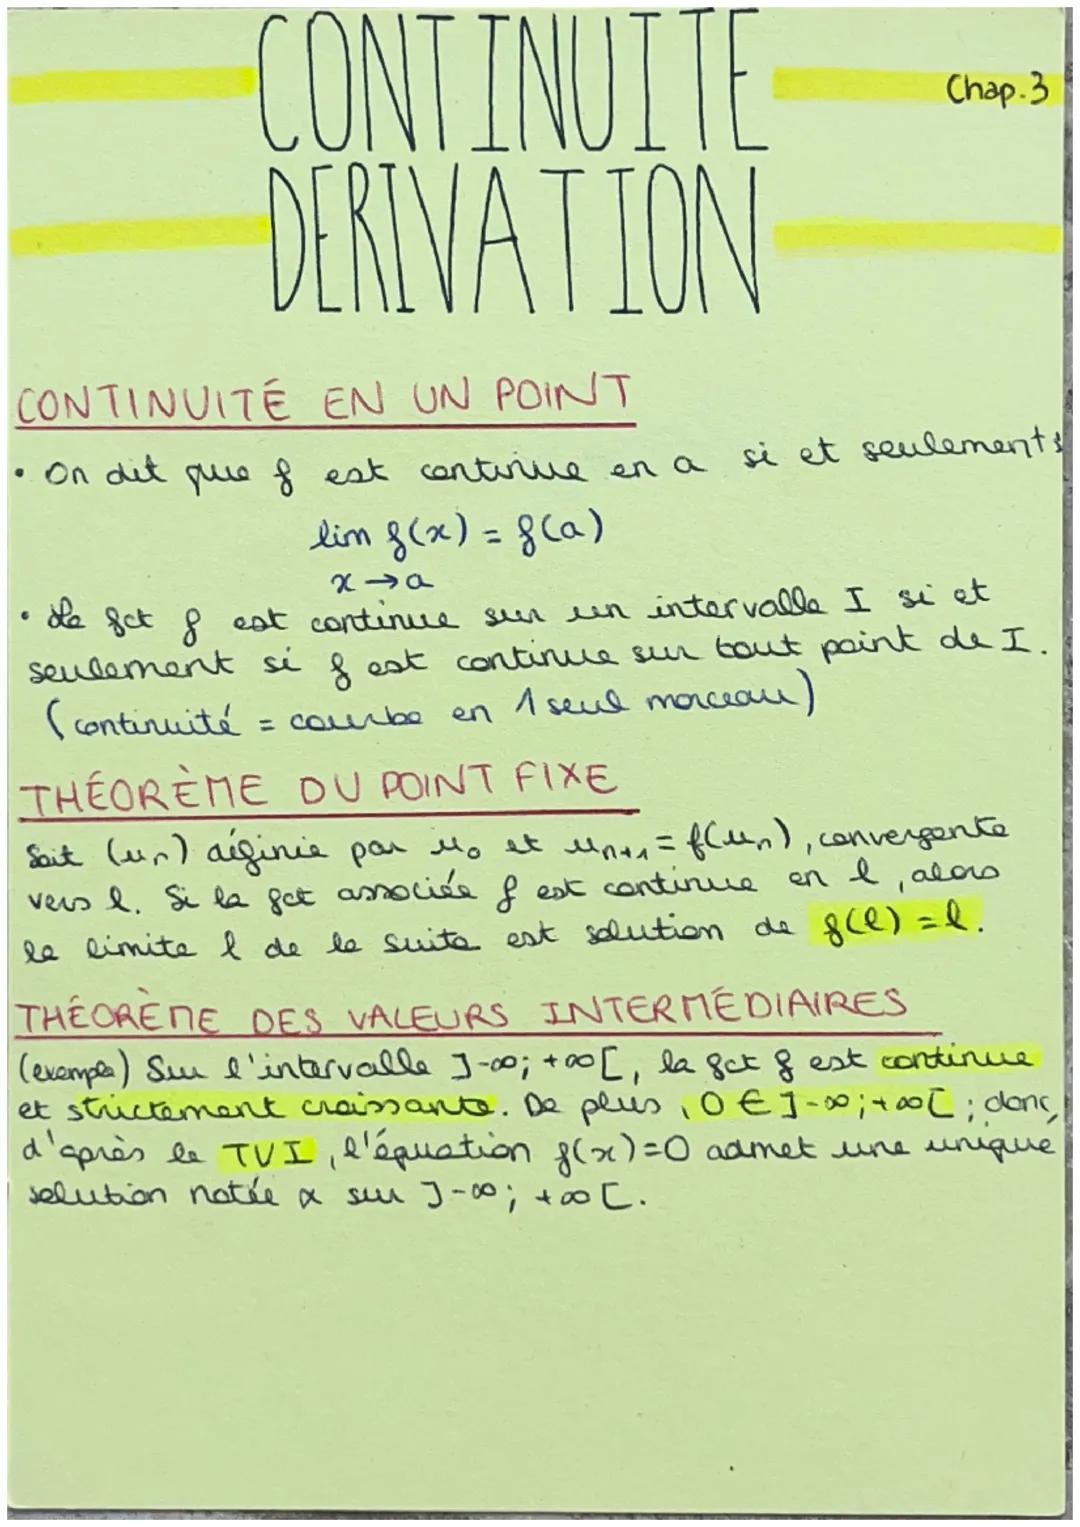 CONTINUITE
Chap.3
DERIVATION
CONTINUITÉ EN UN POINT
• On dit que f est continue en a si et seulements
lim f(x) = f(a)
x → a
• La fct f est continue sur un intervalle I si et
seulement si f est continue sur tout point de I.
(continuité = courbe en 1 seul morceau)
THÉORÈME DU POINT FIXE
Soit (un) définie par u₀ et uₙ₊₁ = f(uₙ), convergente
vers l. Si la fct associée f est continue en l, alors
la limite l de la suite est solution de f(l) = l.
THÉORÈME DES VALEURS INTERMÉDIAIRES
(exemple) Sur l'intervalle ]-∞; +∞[, la fct f est continue
et strictement croissante. De plus, 0 ∈ ]-∞; +∞[; donc,
d'après le TVI, l'équation f(x)=0 admet une unique
solution notée α sur ]-∞; +∞[.